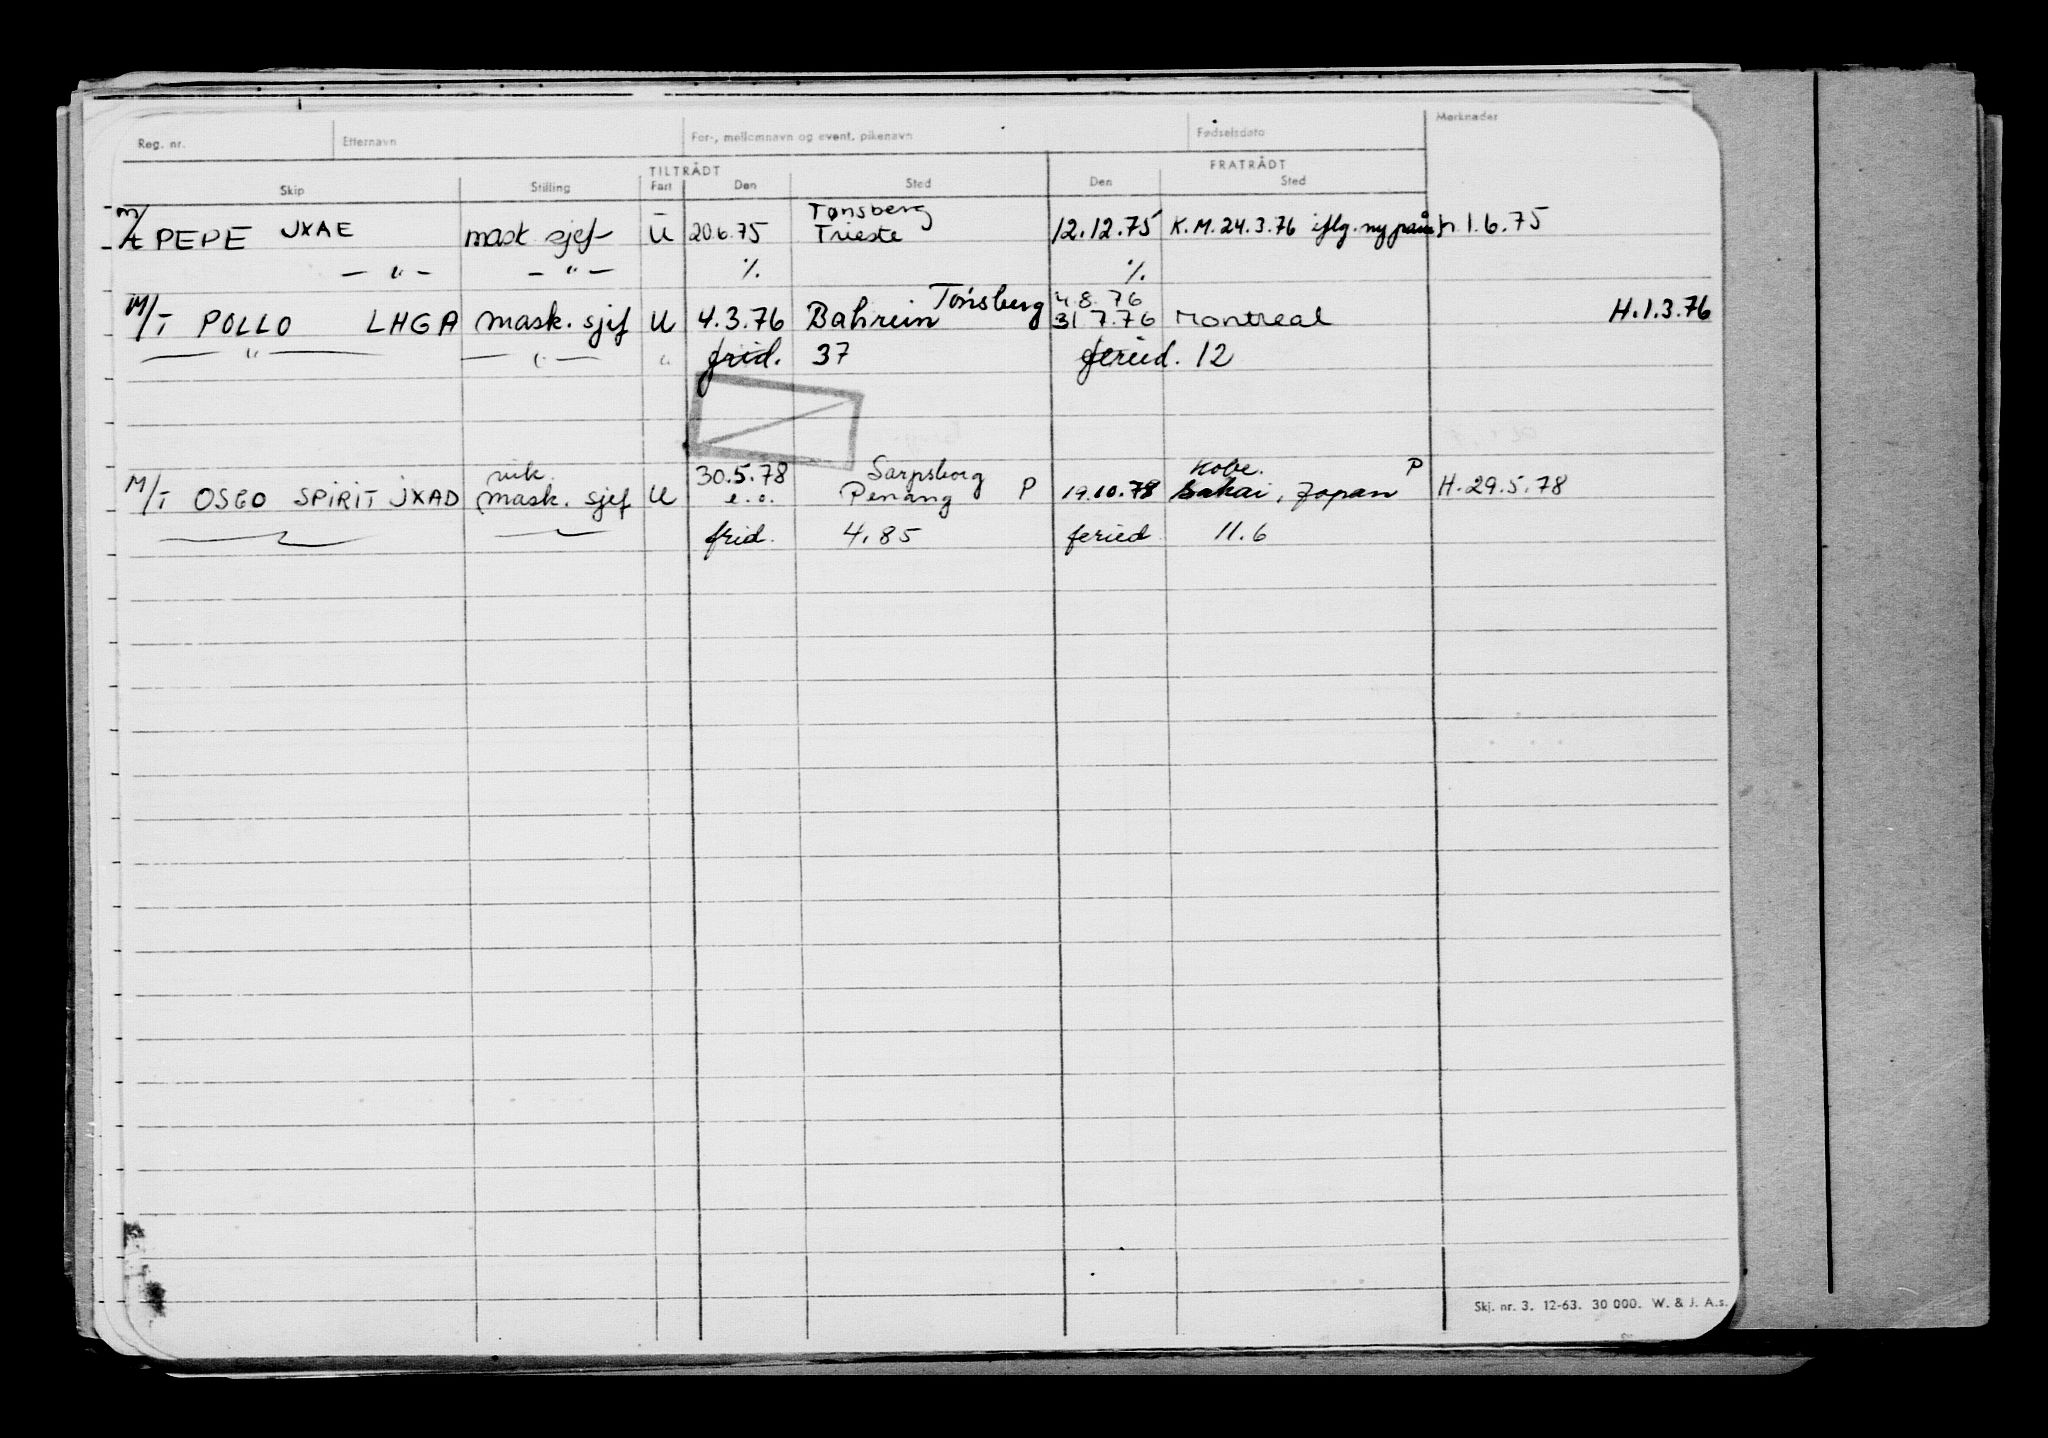 Reg. nr. Etternavn For-, mellomnavn og event. pikenavn Fødselsdato Merknader
TILTRÅDT FRATRÅDT
Skip Stilling Fart Den Sted Den Sted
Tønsberg
M/t PEPE JXAE mask sjef U 20.6.75 Trieste 12.12.75 K.M. 24.3.76 iflg. ny h 1.6.75
— " — — " — % %
Tønsberg 4.8.76
M/T POLLO LHGA mask. sjef U 4.3.76 Bahrein 31 7.76 Montreal H.1.3.76
— " — — " — " frid. 37 feried. 12
vik. 30.5.78 Sarpsborg Kobe. P
M/T OSCO SPIRIT JXAD mask. sjef U e.o. Penang P 19.10.78 Sakai, Japan H.29.5.78
frid. 4.85 feried 11.6
Skj. nr. 3. 12-63. 30 000. W. & J. A.s.